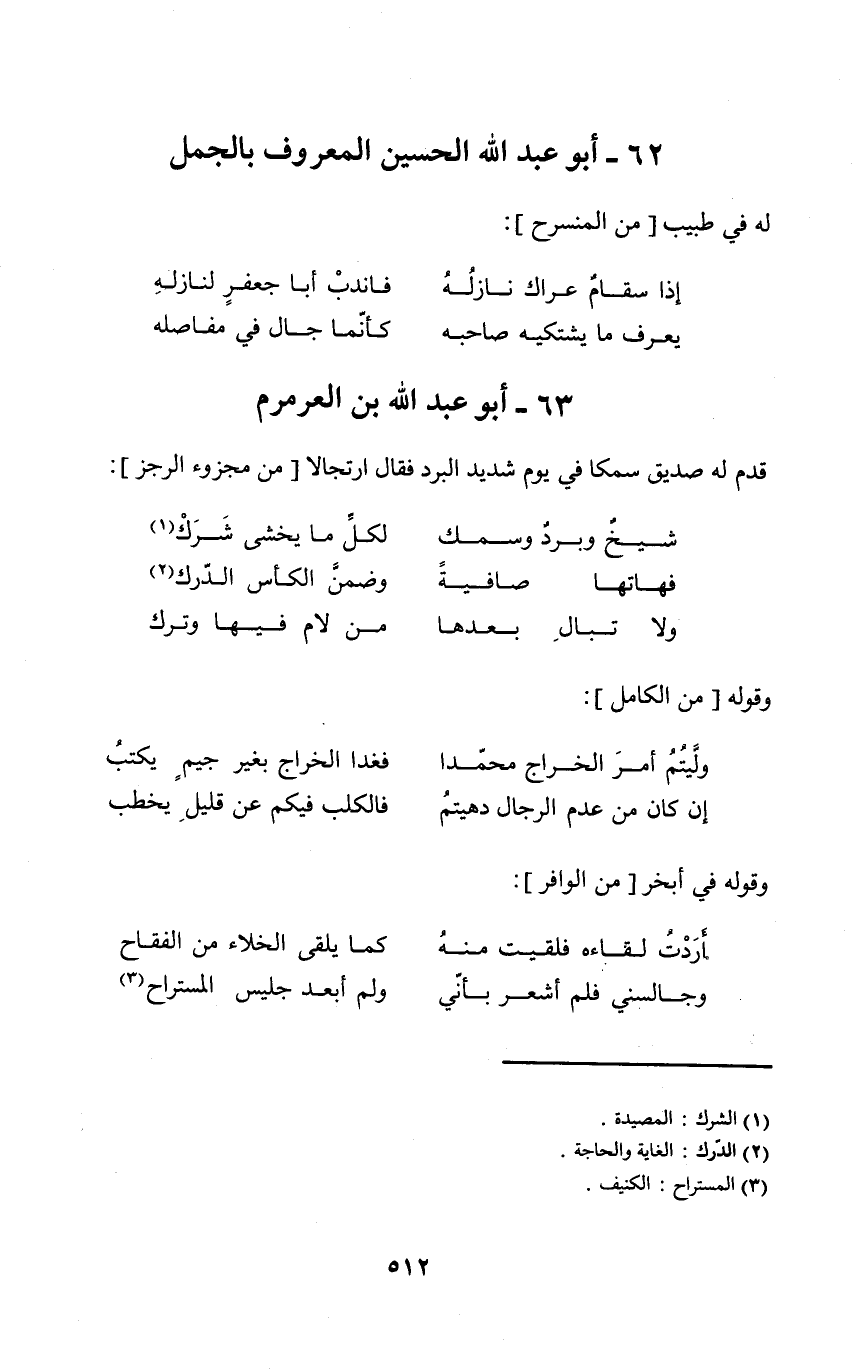 ٦٢ ـ أبو عبد الله الحسين المعروف بالجمل
له في طبيب [ من المنسرح ]:
إذا سقـامٌ عراك نـازلُـهُ فـاندبْ أبـا جعفرٍ لنـازلـهِ
يعـرف ما يشتكيـه صاحبـه كـأنّمـا جـال في مفـاصله
٦٣ ـ أبو عبد الله بن العرمرم
قدم له صديق سمكا في يوم شديد البرد فقال ارتجالا [ من مجزوء الرجز ]:
شـيـخٌ وبـردٌ وسـمـك لكـلِّ مـا يخشى شَـرَكْ(١)
فهـاتهـا صـافيـةً وضمنَّ الكـأس الـدّرك(٢)
ولا تـبـالِ بـعـدهـا مـن لام فـيـهـا وتـرك
وقوله [ من الكامل ]:
ولَّيتُمُ أمـرَ الخـراج محمّـدا فغدا الخراج بغير جيمٍ يكتبُ
إن كان من عدم الرجال دهيتمُ فالكلب فيكم عن قليلِ يخطب
وقوله في أبخر [ من الوافر ]:
أَرَدْتُ لـقـاءه فلقيـت منـهُ كمـا يلقى الخلاء من الفقاح
وجـالسني فلم أشعـر بـأنّي ولم أبعـد جليس المستراح(٣)
(١) الشرك : المصيدة .
(٢) الدّرك : الغاية والحاجة .
(٣) المستراح : الكنيف .
٥١٢